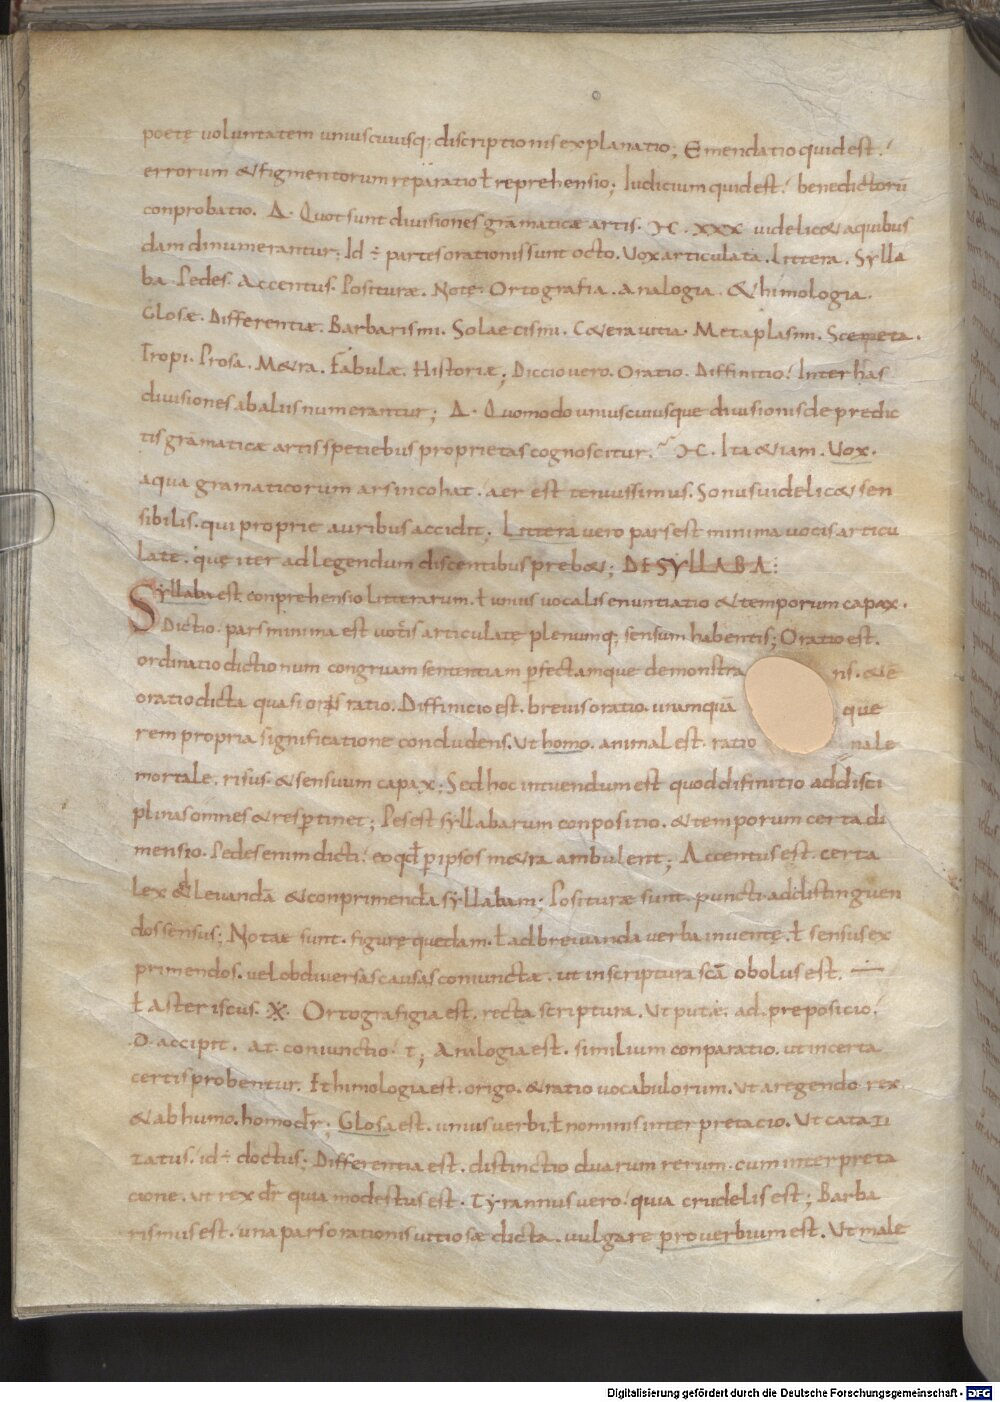 poetę voluntatem uniuscuiusq; discriptionis explanatio; Emendatio quid est.
errorum & figmentorum reparatio ł reprehensio; Iudicium quid est. benedictorū
conprobatio. Δ. Quot sunt divisiones grāmaticæ artis. XXX videlic& a quibus
dam dinumerantur; Id ÷ partes orationis sunt octo. Vox articulata. Littera. Sylla
ba. Pedes. Accentus. Posituræ. Note. Ortografia. Analogia. &himologia.
Glosæ. Differentiæ. Barbarismi. Soloecismi. C&era vitia. Metaplasmi. Scemeta.
Tropi. Prosa. M&ra. Fabulæ. Historiæ; Diccio vero. Oratio. Diffinitio. Inter has
divisiones ab aliis numerantur; Δ. Quomodo uniuscuiusque divisionis de predic
tis grāmaticæ artis speciebus proprietas cognoscitur. Ita &iam. Vox.
a qua gramaticorum ars incohat. aer est tenuissimus. Sonus videlic& sen
sibilis. qui proprie auribus accidit. Littera vero pars est minima vocis articu
late. que iter ad legendum discentibus preb&; DE SYLLABA:
Syllaba est conprehensio litterarum. ł unius vocalis enuntiatio & temporum capax.
Dictio. pars minima est vocis articulatę plenumq; sensum habentis; Oratio est.
ordinatio dictionum congruam sententiam pfectamque demonstra ns. & ē
oratio dicta quasi oris ratio. Diffinicio est. brevis oratio. unamquā que
rem propria significatione concludens. Ut homo. animal est. ratio nale
mortale. risus. & sensuum capax; Sed hoc intuendum est quod difinitio ad disci
plinas omnes & res ptinet; Pes est syllabarum conpositio. & temporum certa di
mensio. Pedes enim dicti. eo qđ p ipsos m&ra ambulent; Accentus est. certa
lex ađ levandā & conprimendā syllabam; Posituræ sunt. puncti ad distinguen
dos sensus; Notae sunt. figurę quedam. ł ad brevianda verba inventę. ł sensus ex
primendos. vel ob diversas causas coniunctæ. ut in scriptura scā obolus est. —
ł Asteriscus. ※. Ortografigia est. recta scriptura. Ut put&. ad. preposicio.
.D. accipit. At. coniunctio. t; Analogia est. similium conparatio. ut incerta
certis probentur. Ethimologia est. origo. & ratio vocabulorum. Ut a regendo rex
& ab humo. homo dr̄; Glosa est. unius verbi. ł nominis interpretacio. Ut cata TI
TATUS. id ÷ doctus; Differentia est. distinctio duarum rerum. cum interpreta
cione. ut rex dr̄ quia modestus est. Tyrannus vero. quia crudelis est; Barba
rismus est. una pars orationis vitiosæ dicta. vulgare proverbium est. Ut male
Digitalisierung gefördert durch die Deutsche Forschungsgemeinschaft - DFG